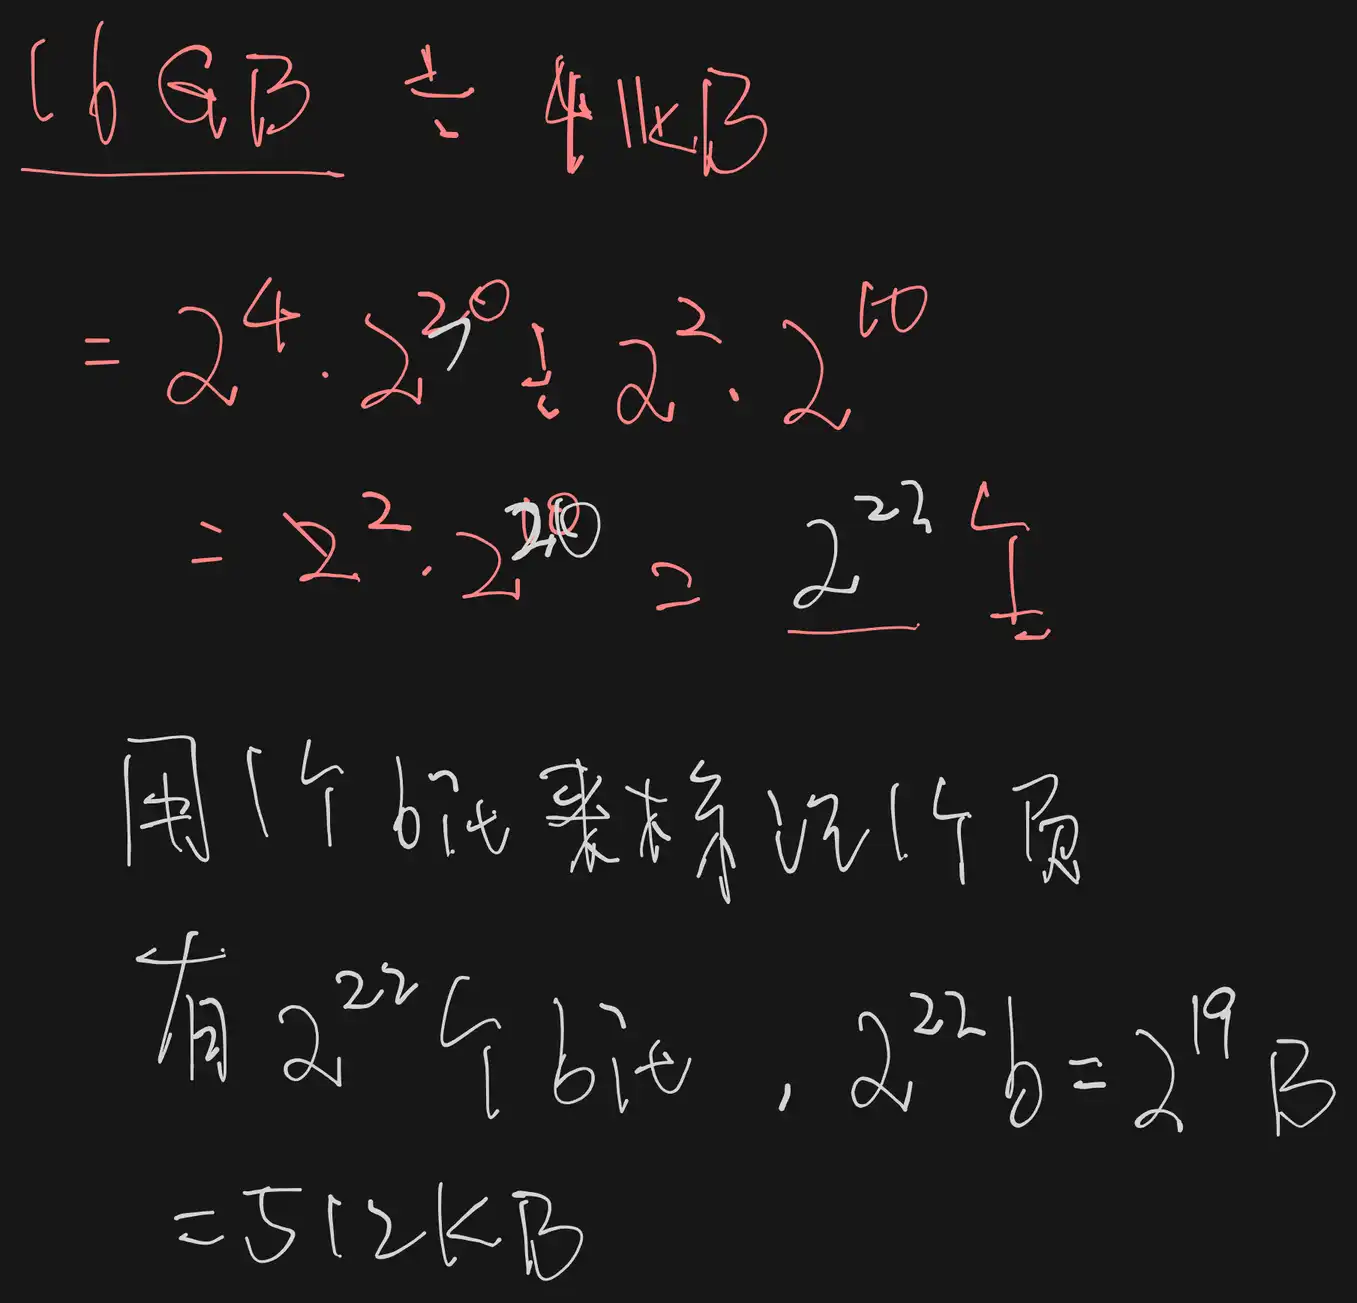 16GB ÷ 4KB
= 2⁴ · 2³⁰ ÷ 2² · 2¹⁰
= 2² · 2²⁰ = 2²² 个
用1个bit来标记1个页
有2²²个bit, 2²²b = 2¹⁹B
= 512KB